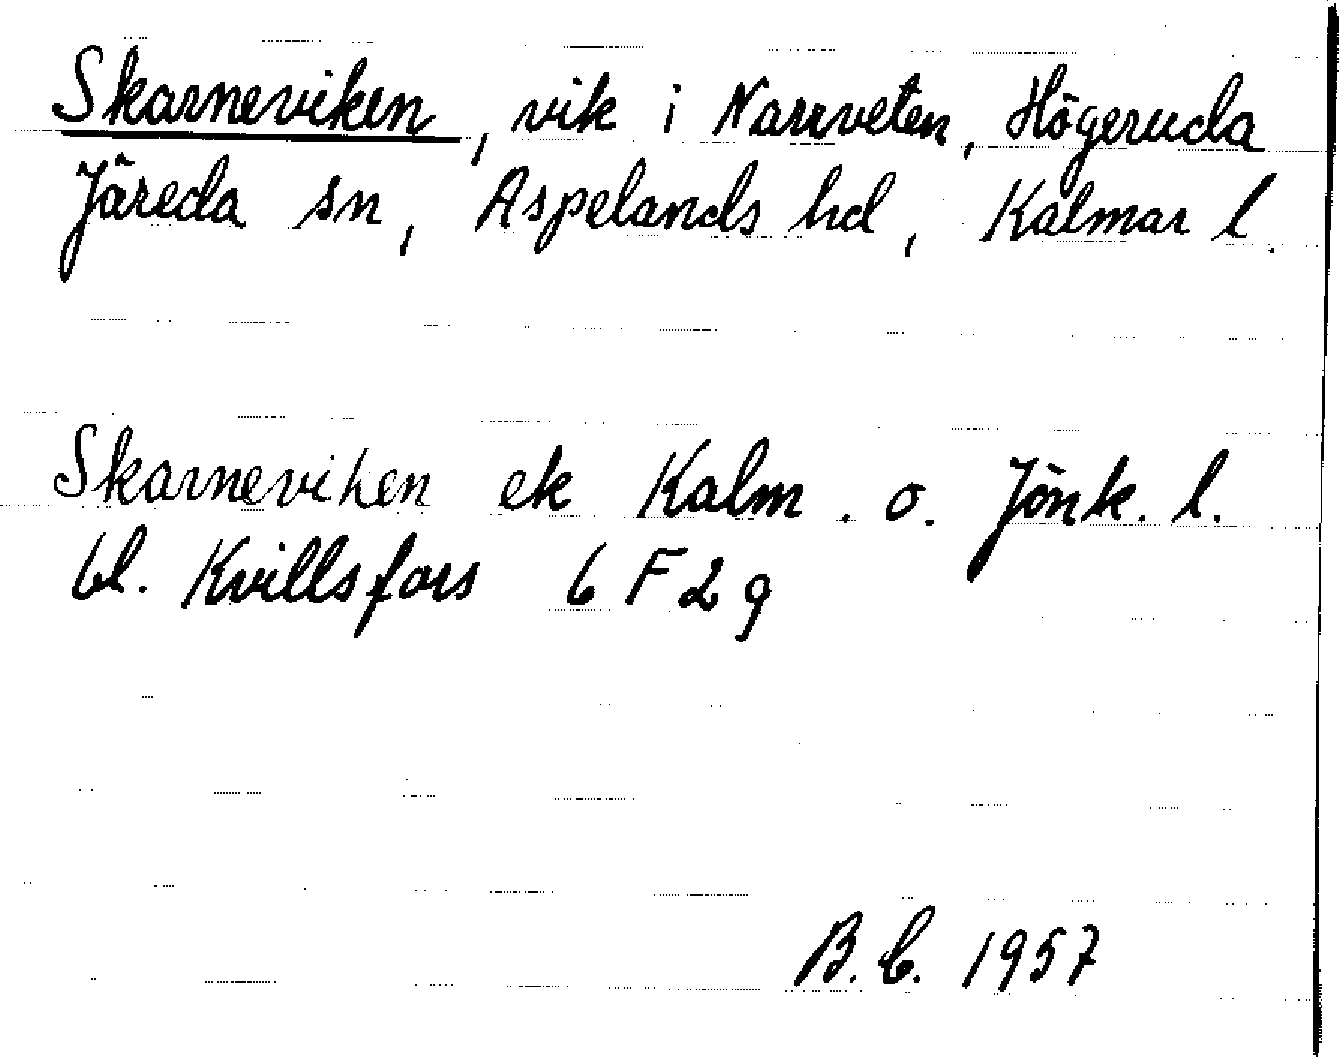 Skarneviken, vik i Narrveten, Högeruda
Järeda sn, Aspelands hd, Kalmar l.
Skarneviken ek Kalm. o. Jönk. l.
bl. Kvillsfors 6 F 2 g
B. C. 1957